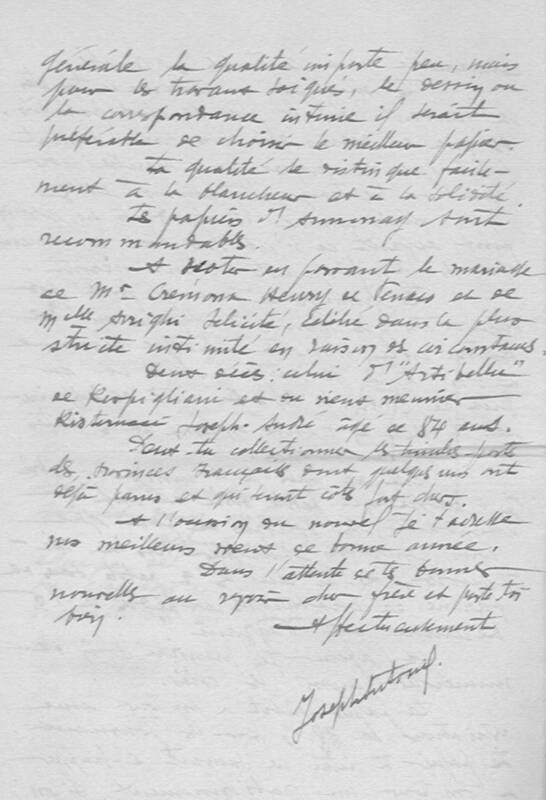 générale la qualité importe peu, mais
pour les travaux soignés, le dessin ou
la correspondance intime il serait
préférable de choisir le meilleur papier.
La qualité se distingue facile-
ment à la blancheur et à la solidité.
Les papiers d'Annonay sont
recommandables.
A noter en passant le mariage
de Mr Cremona Henry de Tences et de
Melle Arrighi Félicité, célébré dans la plus
stricte intimité en raison des circonstances.
Deux décès: celui d'"Artibellu"
de Rospigliani et du vieux meunier
Joseph-André âgé de 84 ans.
Peux-tu collectionner les timbres-poste
des provinces françaises dont quelques uns ont
déjà parus et qui sont côtés fort cher.
A l'occasion du nouvel je t'adresse
mes meilleurs voeux de bonne année.
Dans l'attente de tes bonnes
nouvelles au revoir cher frère et porte toi
bien.
Affectueusement